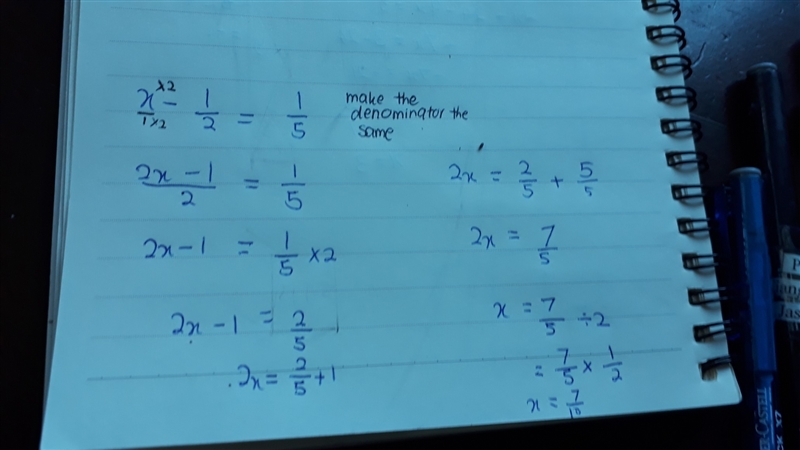 x×2/1×2 - 1/2 = 1/5
make the
denominator the
same
2x - 1/2 = 1/5
2x - 1 = 1/5 × 2
2x - 1 = 2/5
2x = 2/5 + 1
2x = 2/5 + 5/5
2x = 7/5
x = 7/5 ÷ 2
= 7/5 × 1/2
x = 7/10